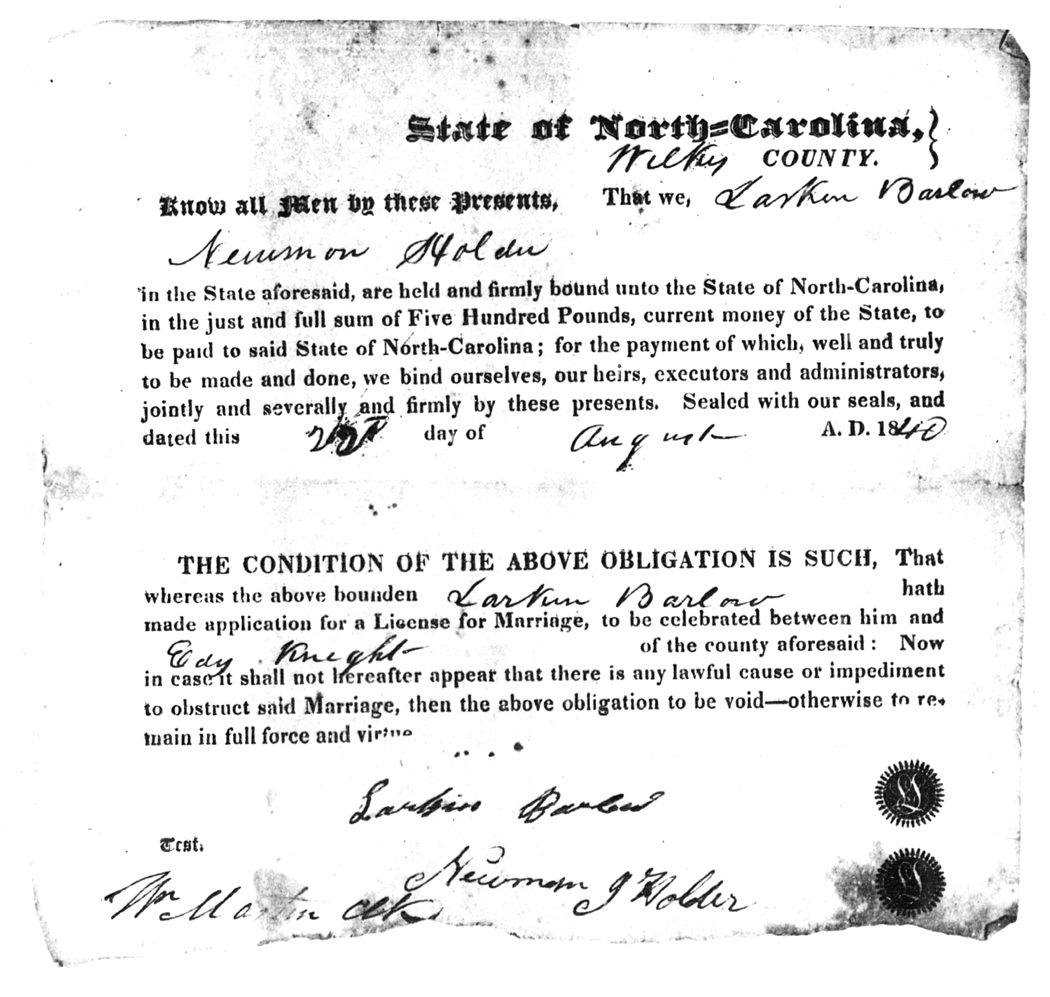 State of North=Carolina,
Wilkes COUNTY.
Know all Men by these Presents, That we, Larkin Barlow
Newmon Holder
in the State aforesaid, are held and firmly bound unto the State of North-Carolina,
in the just and full sum of Five Hundred Pounds, current money of the State, to
be paid to said State of North-Carolina; for the payment of which, well and truly
to be made and done, we bind ourselves, our heirs, executors and administrators,
jointly and severally and firmly by these presents. Sealed with our seals, and
dated this day of August A. D. 1840
THE CONDITION OF THE ABOVE OBLIGATION IS SUCH, That
whereas the above bounden Larkin Barlow hath
made application for a License for Marriage, to be celebrated between him and
Edy Knight of the county aforesaid: Now
in case it shall not hereafter appear that there is any lawful cause or impediment
to obstruct said Marriage, then the above obligation to be void—otherwise to re-
main in full force and virtue
Larkin Barlow
Test.
Newman J Holder
Wm Martin Clk